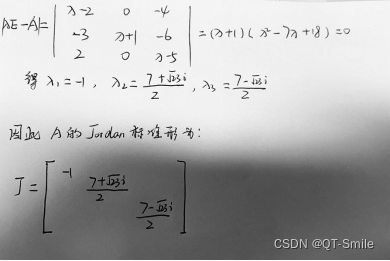 |λE-A|= | λ-2 0 -4 |
| -3 λ+1 -6 | = (λ+1)(λ²-7λ+18)=0
| 2 0 λ-5 |
得 λ₁=-1, λ₂= (7+√23i)/2, λ₃= (7-√23i)/2
因此 A的Jordan标准形为:
J= [ -1
(7+√23i)/2
(7-√23i)/2 ]
CSDN @QT-Smile